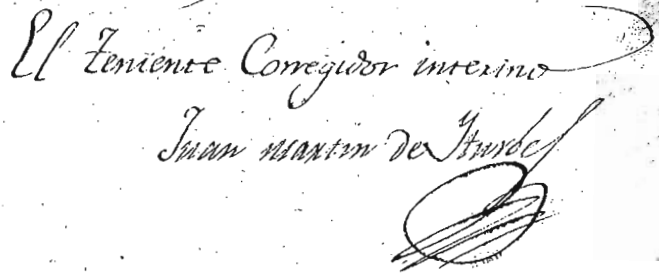 El Teniente Corregidor interino
Juan martin de Yturbe